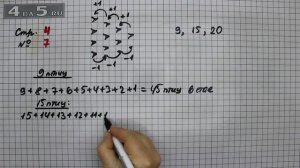 4APS.RU
Стр. 4
№ 7
+1 +1
-1 -1
9, 15, 20
9 птиц
9+8+7+6+5+4+3+2+1=45 птиц в стае
15 птиц:
15+14+13+12+11+1